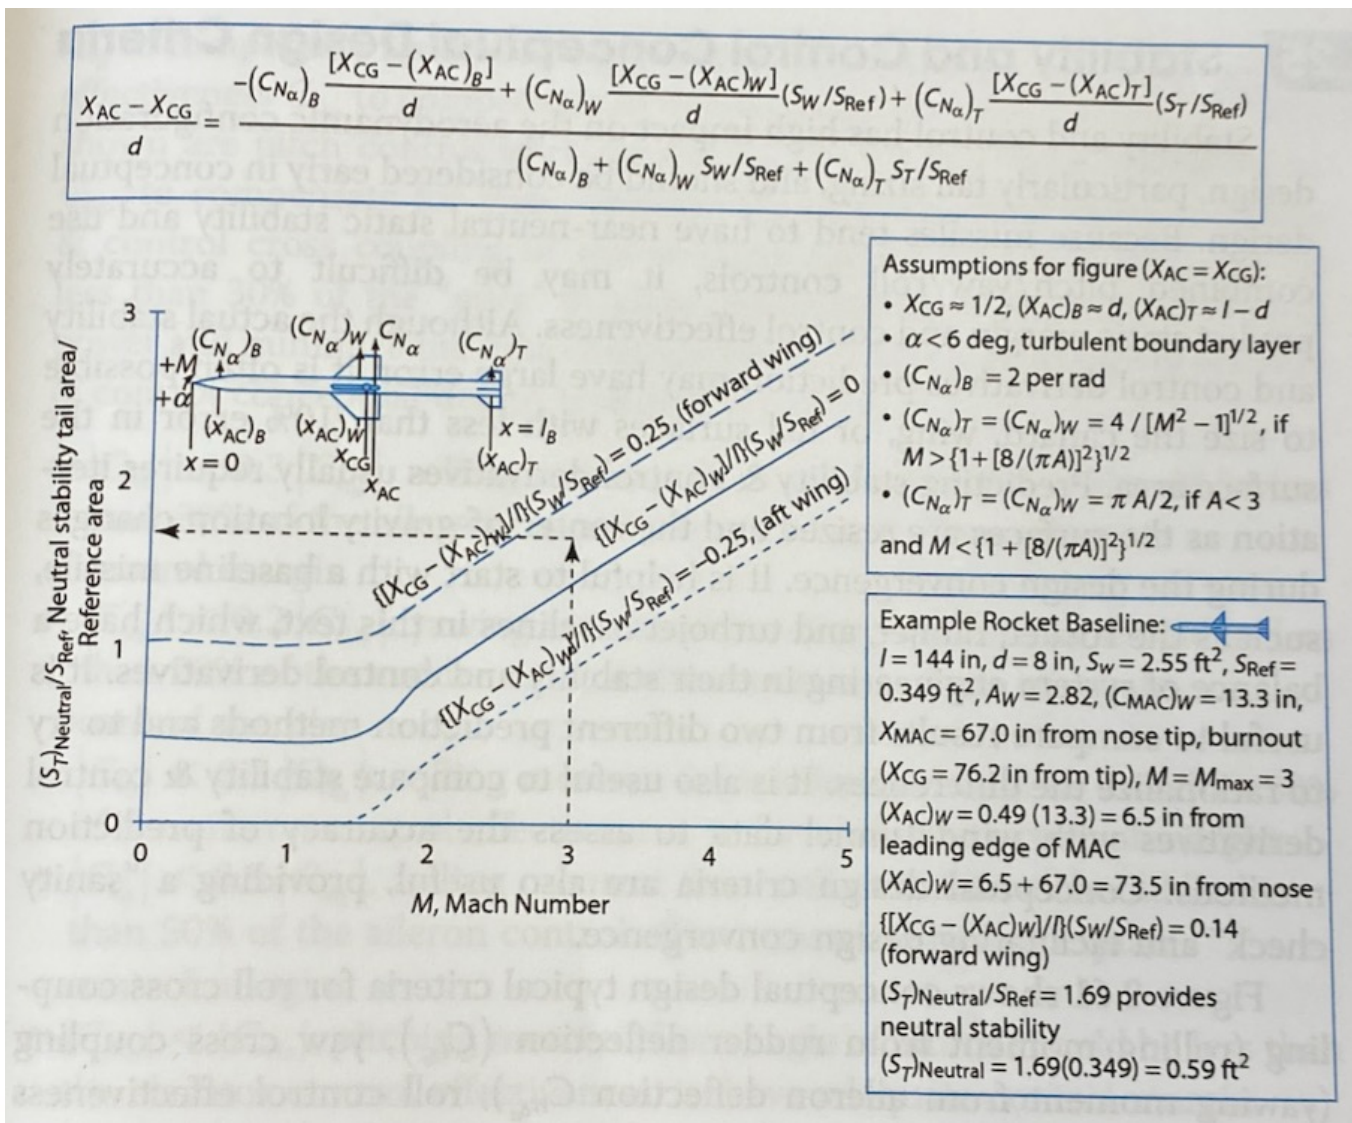 (X_AC − X_CG)/d = {−(C_Nα)_B [X_CG − (X_AC)_B]/d + (C_Nα)_W [X_CG − (X_AC)_W]/d (S_W/S_Ref) + (C_Nα)_T [X_CG − (X_AC)_T]/d (S_T/S_Ref)} / {(C_Nα)_B + (C_Nα)_W S_W/S_Ref + (C_Nα)_T S_T/S_Ref}
(S_T)_Neutral/S_Ref, Neutral stability tail area/
Reference area
3
2
1
0
(C_Nα)_B (C_Nα)_W C_Nα (C_Nα)_T
+M
+α
(X_AC)_B (X_AC)_W x = l_B
x = 0 X_CG (X_AC)_T
X_AC
{[X_CG − (X_AC)_W]/l}(S_W/S_Ref) = 0.25, (forward wing)
{[X_CG − (X_AC)_W]/l}(S_W/S_Ref) = 0
{[X_CG − (X_AC)_W]/l}(S_W/S_Ref) = −0.25, (aft wing)
0 1 2 3 4 5
M, Mach Number
Assumptions for figure (X_AC = X_CG):
• X_CG ≈ 1/2, (X_AC)_B ≈ d, (X_AC)_T ≈ l − d
• α < 6 deg, turbulent boundary layer
• (C_Nα)_B = 2 per rad
• (C_Nα)_T = (C_Nα)_W = 4 / [M² − 1]^1/2, if
M > {1 + [8/(πA)]²}^1/2
• (C_Nα)_T = (C_Nα)_W = π A/2, if A < 3
and M < {1 + [8/(πA)]²}^1/2
Example Rocket Baseline:
l = 144 in, d = 8 in, S_W = 2.55 ft², S_Ref =
0.349 ft², A_W = 2.82, (C_MAC)_W = 13.3 in,
X_MAC = 67.0 in from nose tip, burnout
(X_CG = 76.2 in from tip), M = M_max = 3
(X_AC)_W = 0.49 (13.3) = 6.5 in from
leading edge of MAC
(X_AC)_W = 6.5 + 67.0 = 73.5 in from nose
{[X_CG − (X_AC)_W]/l}(S_W/S_Ref) = 0.14
(forward wing)
(S_T)_Neutral/S_Ref = 1.69 provides
neutral stability
(S_T)_Neutral = 1.69(0.349) = 0.59 ft²